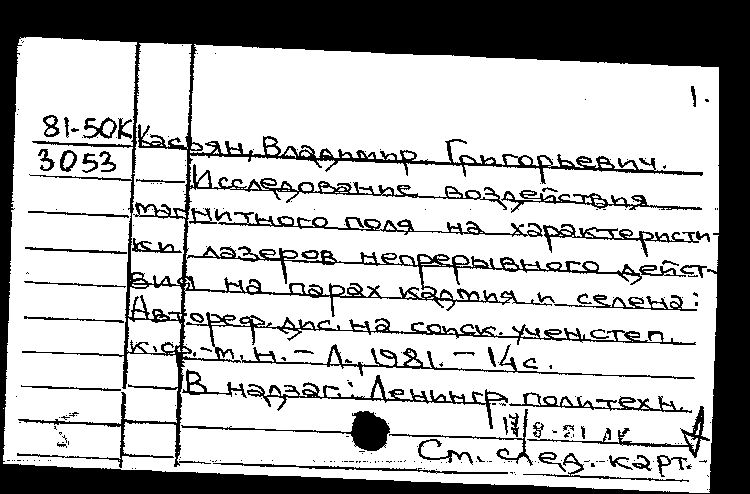 1.
81-50К Касьян, Владимир Григорьевич.
3053
Исследование воздействия
магнитного поля на характеристи-
ки лазеров непрерывного дейст-
вия на парах кадмия и селена:
Автореф. дис. на соиск. учен. степ.
к.ф.-м.н. – Л., 1981. – 14с.
В надзаг.: Ленингр. политехн.
Cm. след. карт.